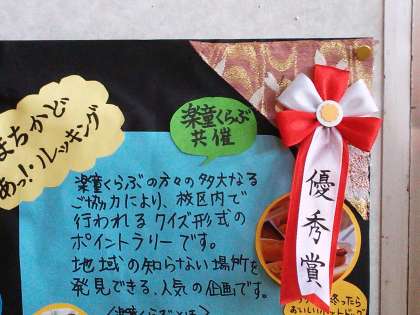 まちかど
あっ!・ルッキング
楽童くらぶ
共催
優秀賞
楽童くらぶの方々の多大なる
ご協力により、校区内で
行われるクイズ形式の
ポイントラリーです。
地域の知らない場所を
発見できる、人気の企画です。